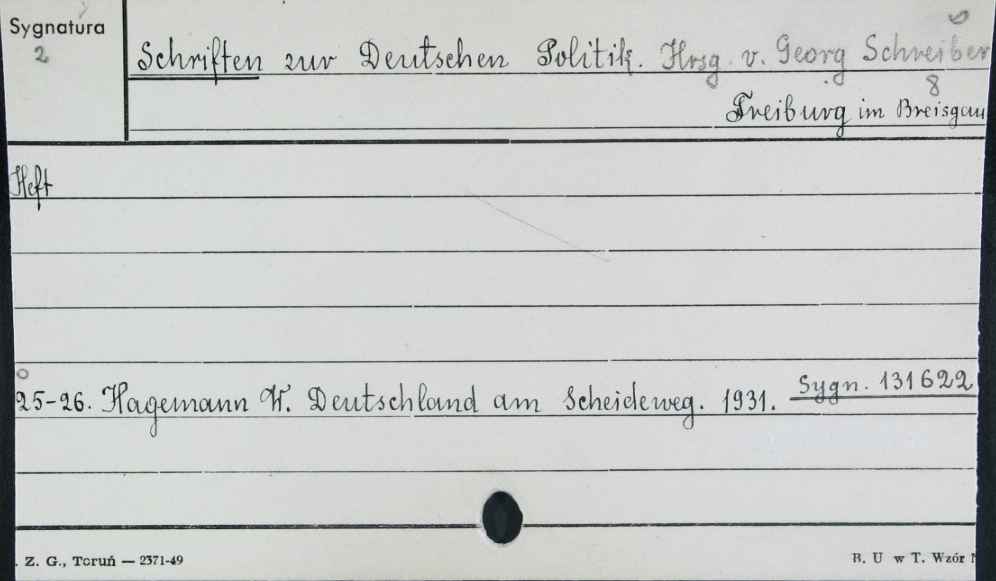 Sygnatura
2
Schriften zur Deutschen Politik. Hrsg. v. Georg Schreiber
8
Freiburg im Breisgau
Heft
25-26. Hagemann W. Deutschland am Scheideweg. 1931. Sygn. 131622
Z. G., Toruń — 2371-49
B. U w T. Wzór